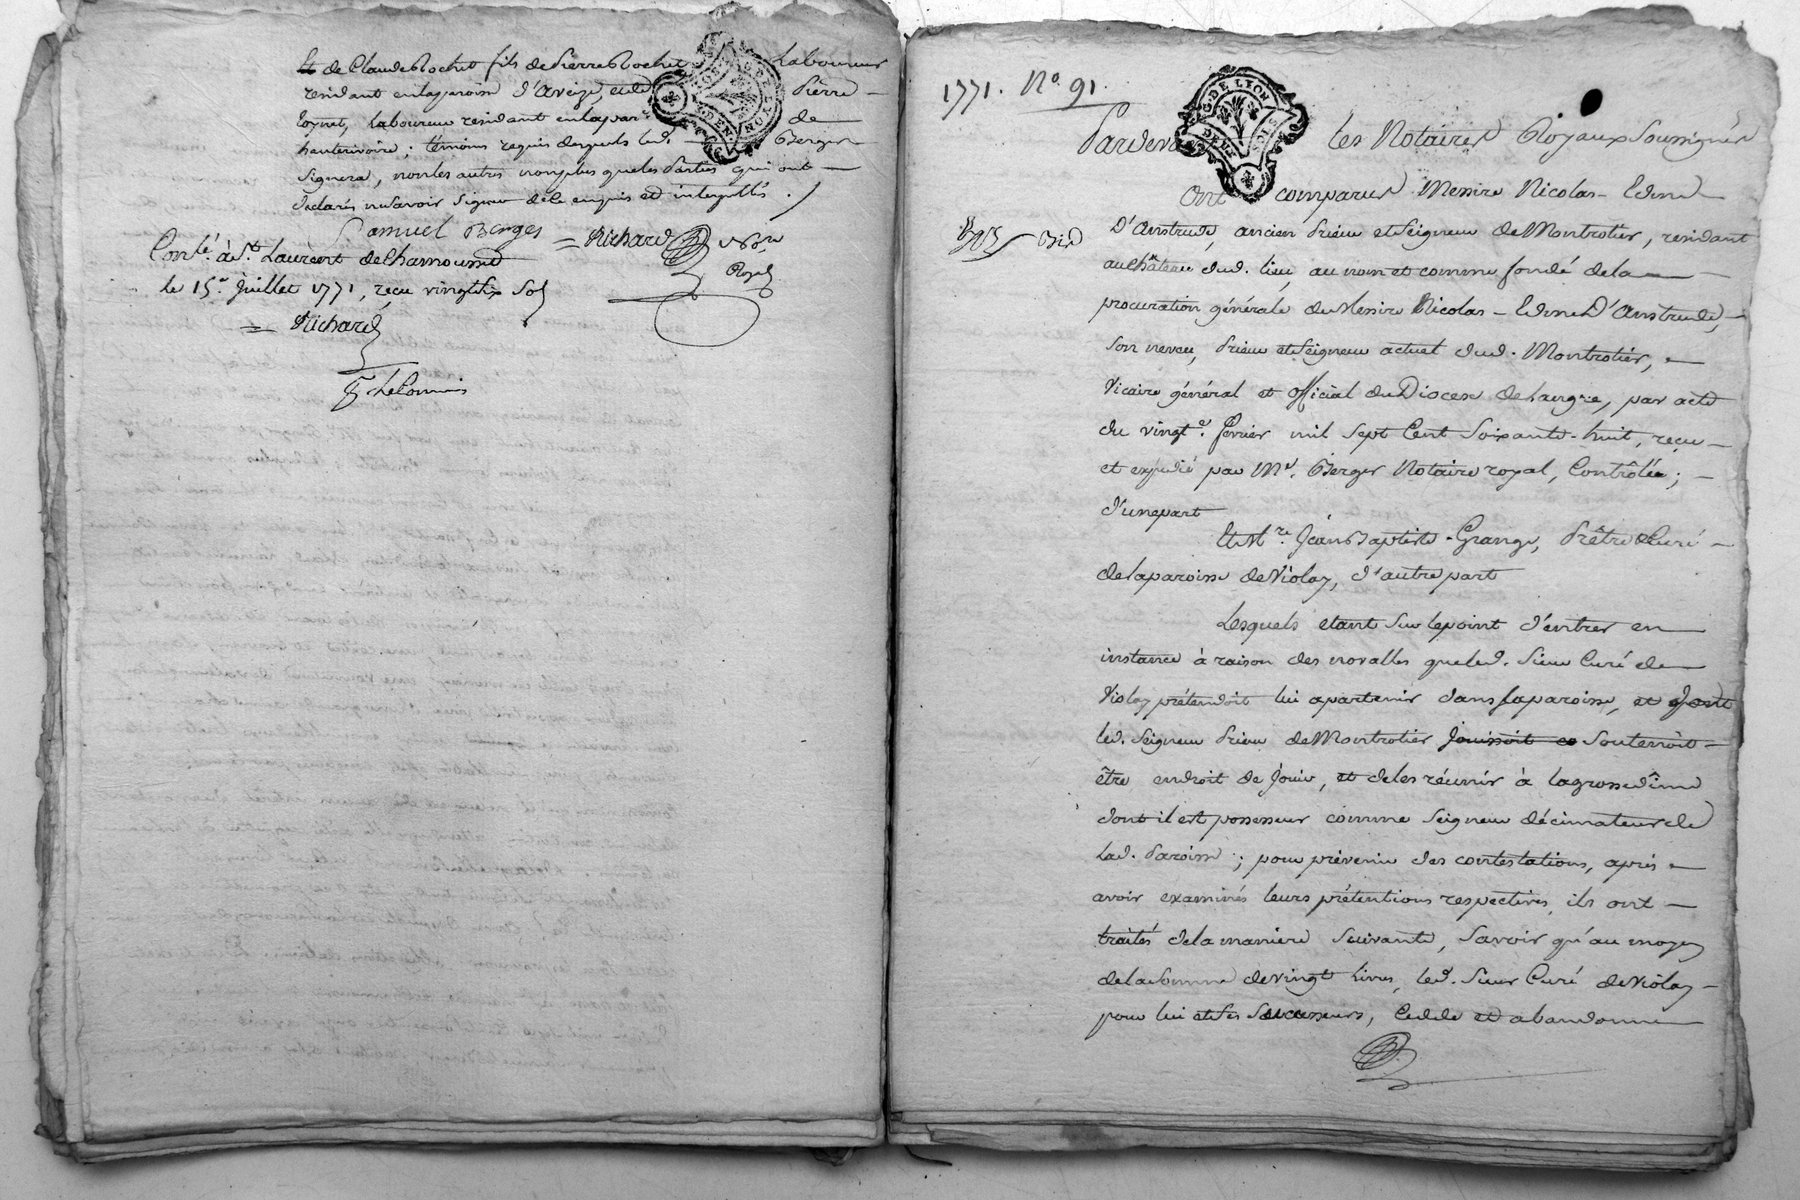 Et de Claude Rochet fils de Pierre Rochet Laboureur
residant en la paroisse d'Aveize, et de Pierre
laboureur residant en la par de
hauterivoire; témoins requis desquels led. Berger
signera, non les autres non plus que les parties qui ont
declarés ne savoir signer de ce enquis et interpellés.
Samuel Berger = Richard
Royal
Conlé. à St. Laurent de Chamousset
le 15e. Juillet 1771, reçu vingt six sols
= Richard
1771. No. 91.
G. DE LYON
Pardevant les Notaires Royaux Soussignés
Ont comparus Messire Nicolas-Edme
D'Anstrude, ancien Prieur et Seigneur de Montrotier, residant
au château dud. lieu, au nom et comme fondé de la
procuration générale de Messire Nicolas-Edme D'Anstrude,
son neveu, Prieur et Seigneur actuel dud. Montrotier,
Vicaire général et official du Diocese de Langre, par acte
du vingte. fevrier mil sept Cent Soixante-huit, reçu
et expedié par Me. Berger Notaire royal, Contrôlée;
d'une part
Et Mre. Jean Baptiste Grange, Prêtre Curé
de la paroisse de Violay, d'autre part
Lesquels etant sur le point d'entrer en
instance à raison des novalles que led. Sieur Curé de
Violay prétendoit lui apartenir dans sa paroisse, et dont
led. Seigneur Prieur de Montrotier jouissoit et soutenoit
être en droit de jouir, et de les réunir à la grosse dîme
dont il est possesseur comme Seigneur décimateur de
lad. Paroisse; pour prévenir des contestations, aprés
avoir examinés leurs prétentions respectives, ils ont
traités de la maniere suivante, savoir qu'au moyen
de la somme de vingt livres, led. Sieur Curé de Violay
pour lui et ses successeurs, Cede et abandonne